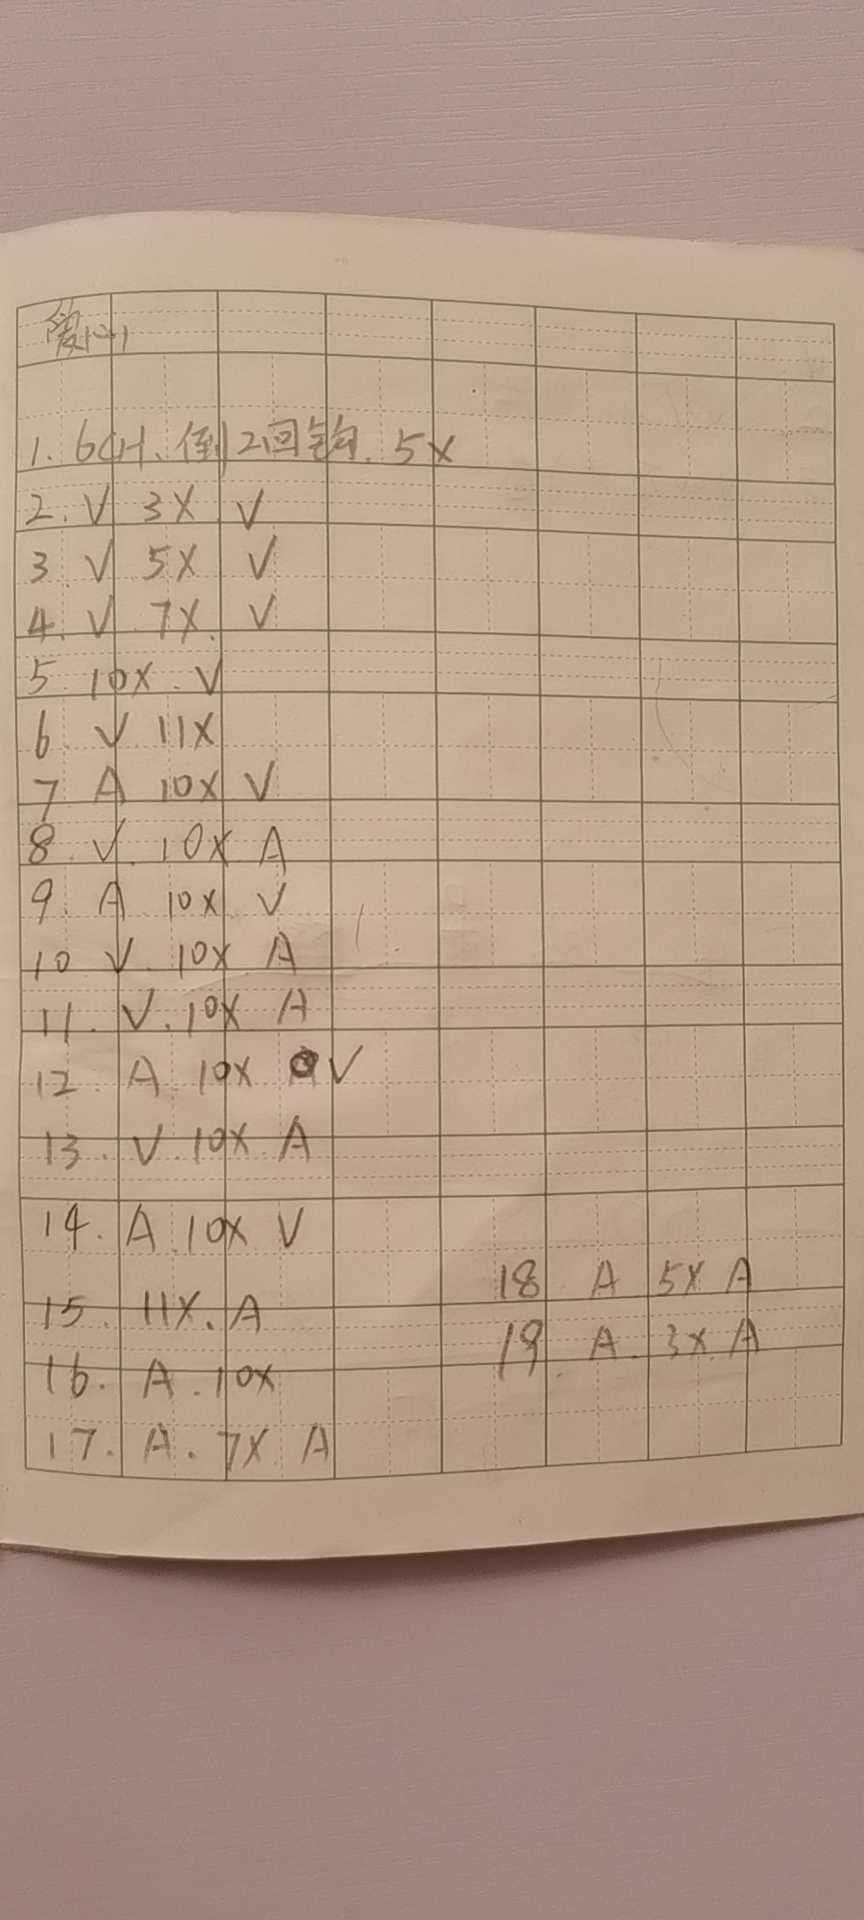 爱心
1. 6CH、倒2回钩. 5X
2. V 3X V
3 V 5X V
4. V 7X. V
5 10X. V
6 V 11X
7 A 10X V
8. V. 10X A
9. A 10X V
10 V. 10X A
11. V. 10X A
12 A 10X V
13. V 10X A
14. A 10X V
15. 11X. A
16. A. 10X
17. A. 7X A
18 A 5X A
19. A. 3X A